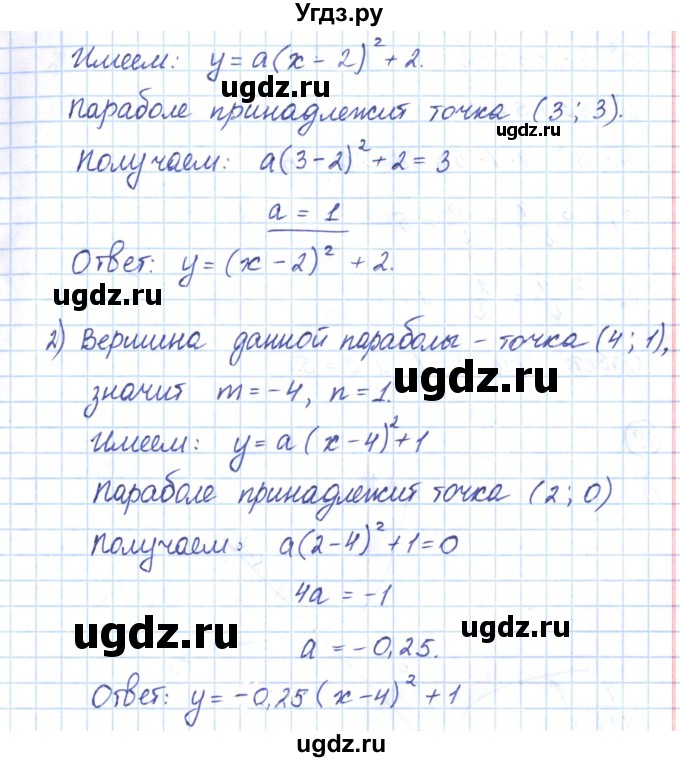 Угдз.ру
Имеем: y = a(x - 2)² + 2.
ugdz.ru
Параболе принадлежит точка (3 ; 3).
ugdz.ru
Получаем: a(3-2)² + 2 = 3
a = 1
Ответ: y = (x - 2)² + 2.
ugdz.ru
2) Вершина данной параболы - точка (4 ; 1),
ugdz.ru
значит m = -4, n = 1.
Имеем: y = a (x - 4)² + 1
Параболе принадлежит точка (2 ; 0)
Получаем: a(2-4)² + 1 = 0
4a = -1
ugdz.ru
ugdz.ru
a = -0,25.
Ответ: y = -0,25 (x-4)² + 1
ugdz.ru